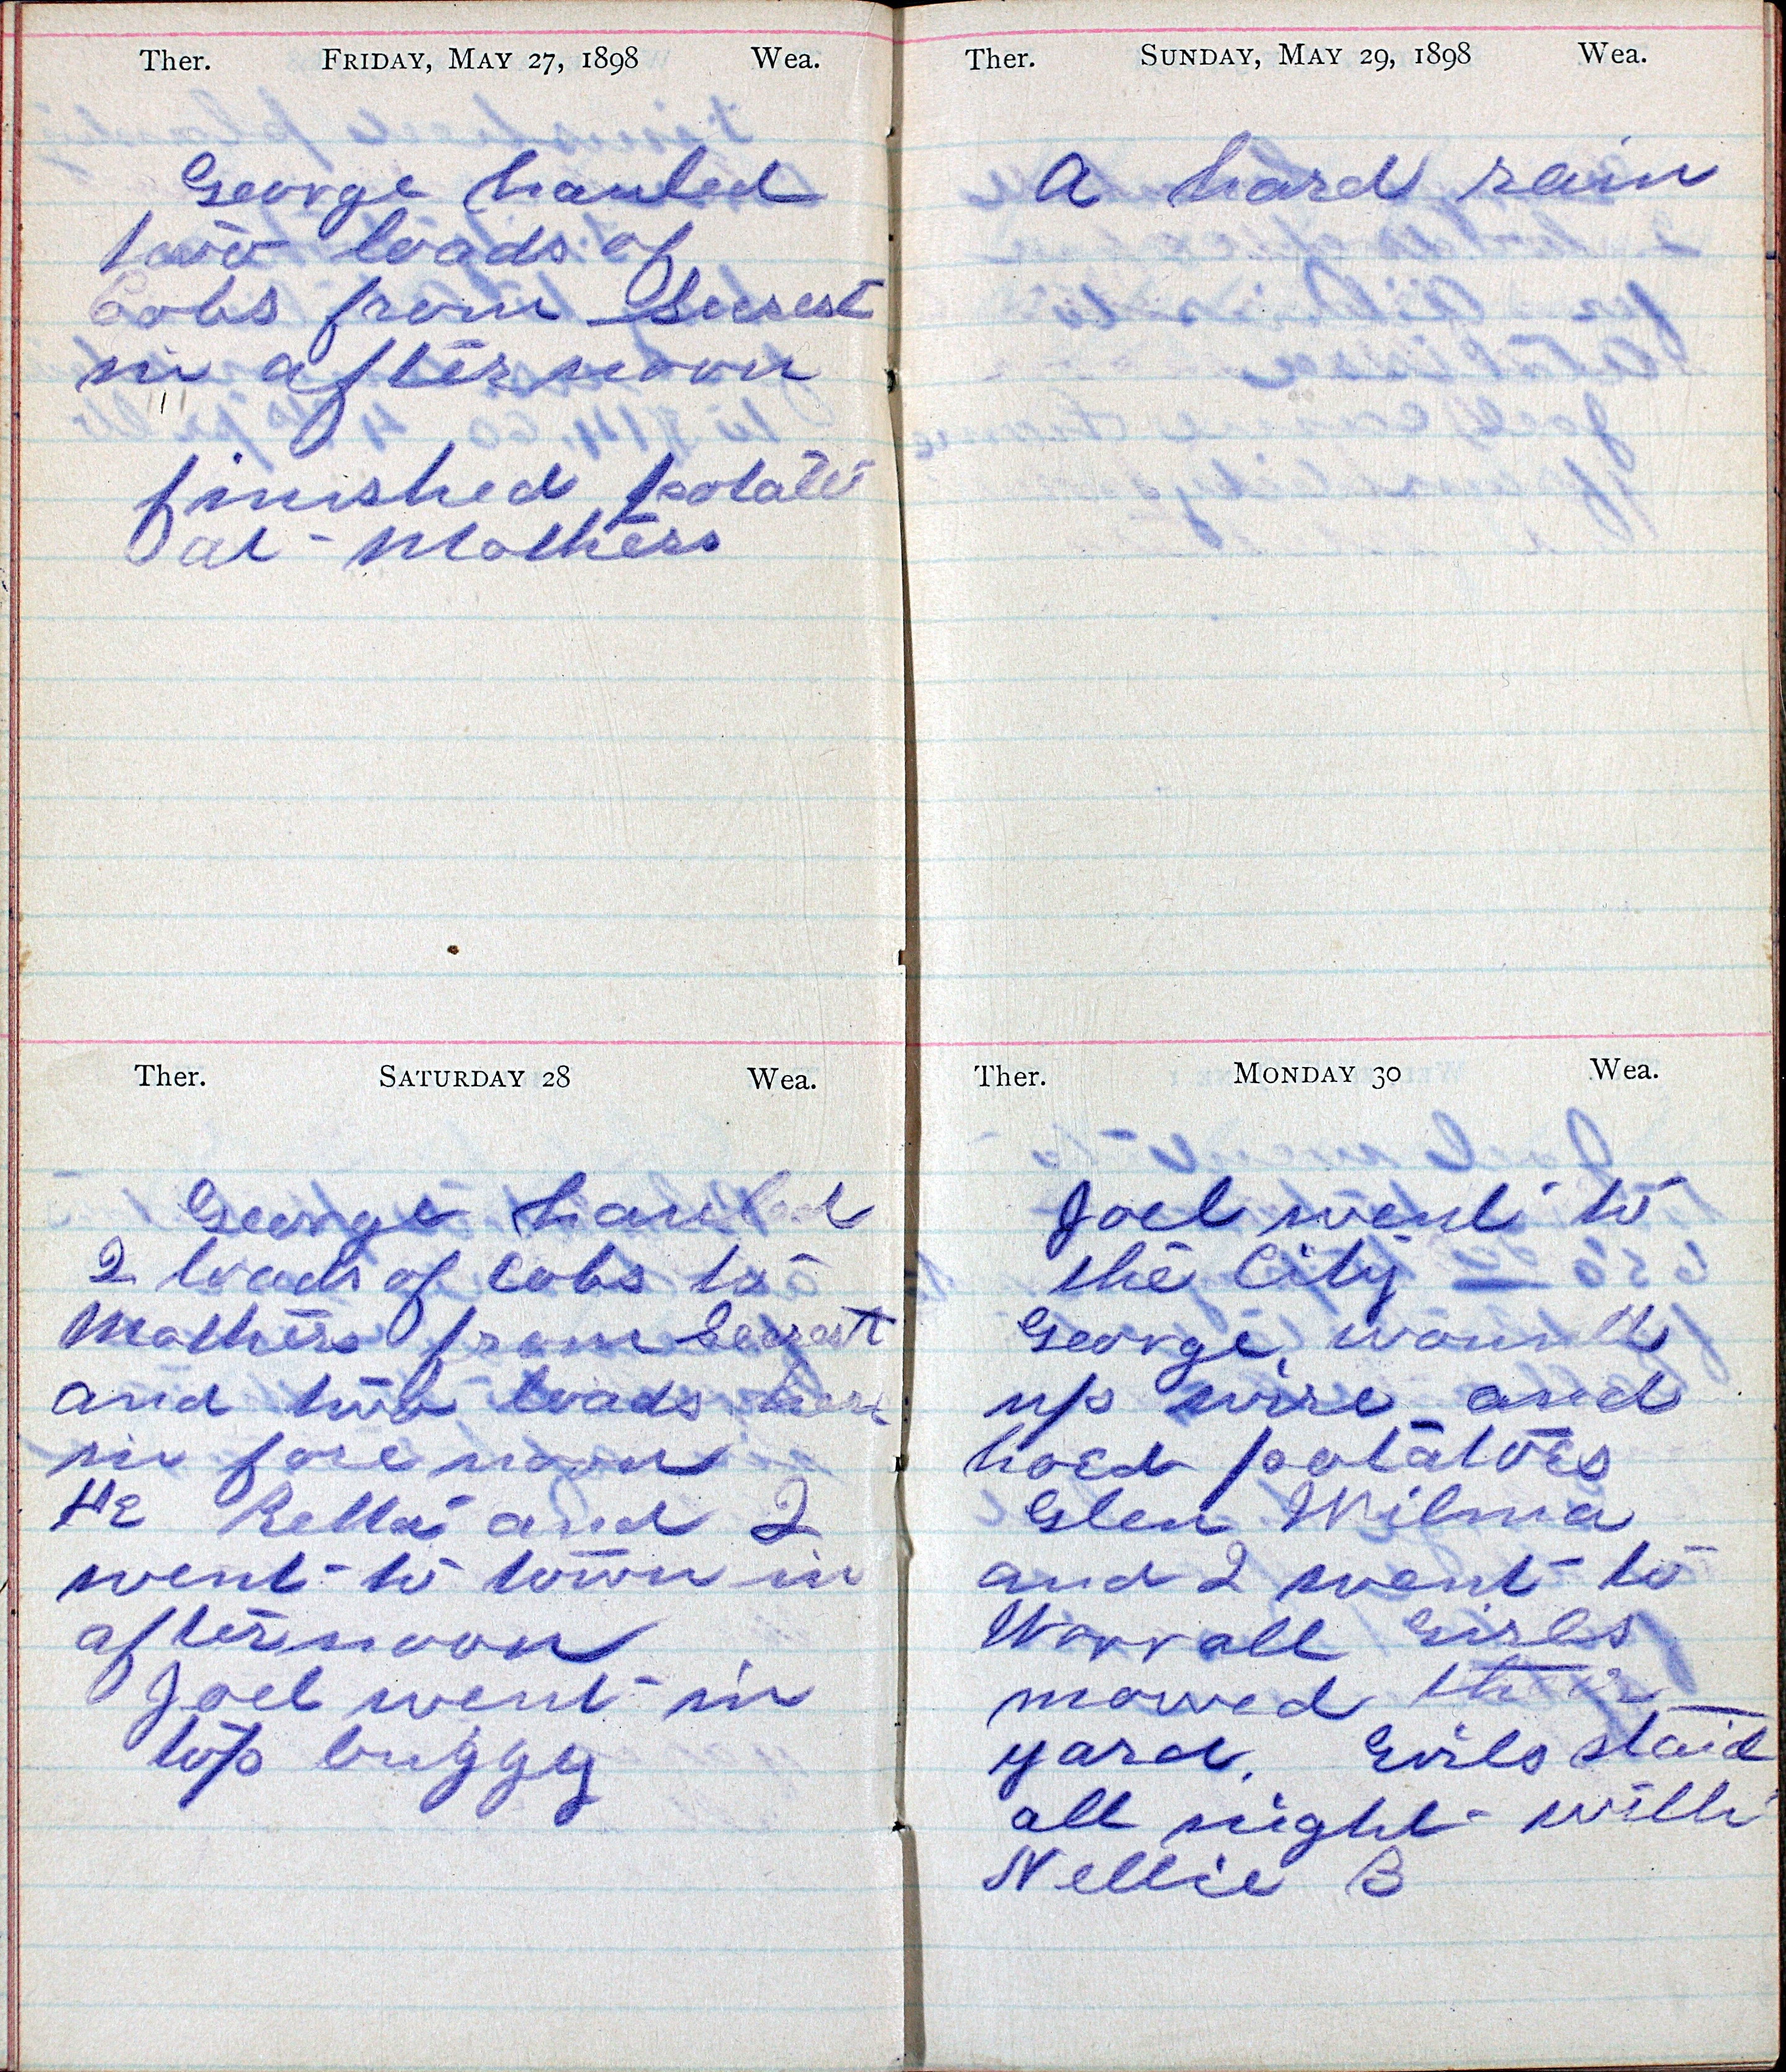 Ther. Friday, May 27, 1898 Wea.
George hauled
two loads of
Cobs from Secrest
in afternoon
finished potatoes
at Mothers
Ther. Saturday 28 Wea.
George hauled
2 loads of Cobs to
Mothers from Secrest
and two loads here
in fore noon
He Rella and I
went to town in
afternoon
Joel went in
top buggy
Ther. Sunday, May 29, 1898 Wea.
A hard rain
Ther. Monday 30 Wea.
Joel went to
the City
George, wound
up wire and
hoed potatoes
Glen Wilma
and I went to
Worrall Girls
mowed their
yard. Girls staid
all night with
Nellie B